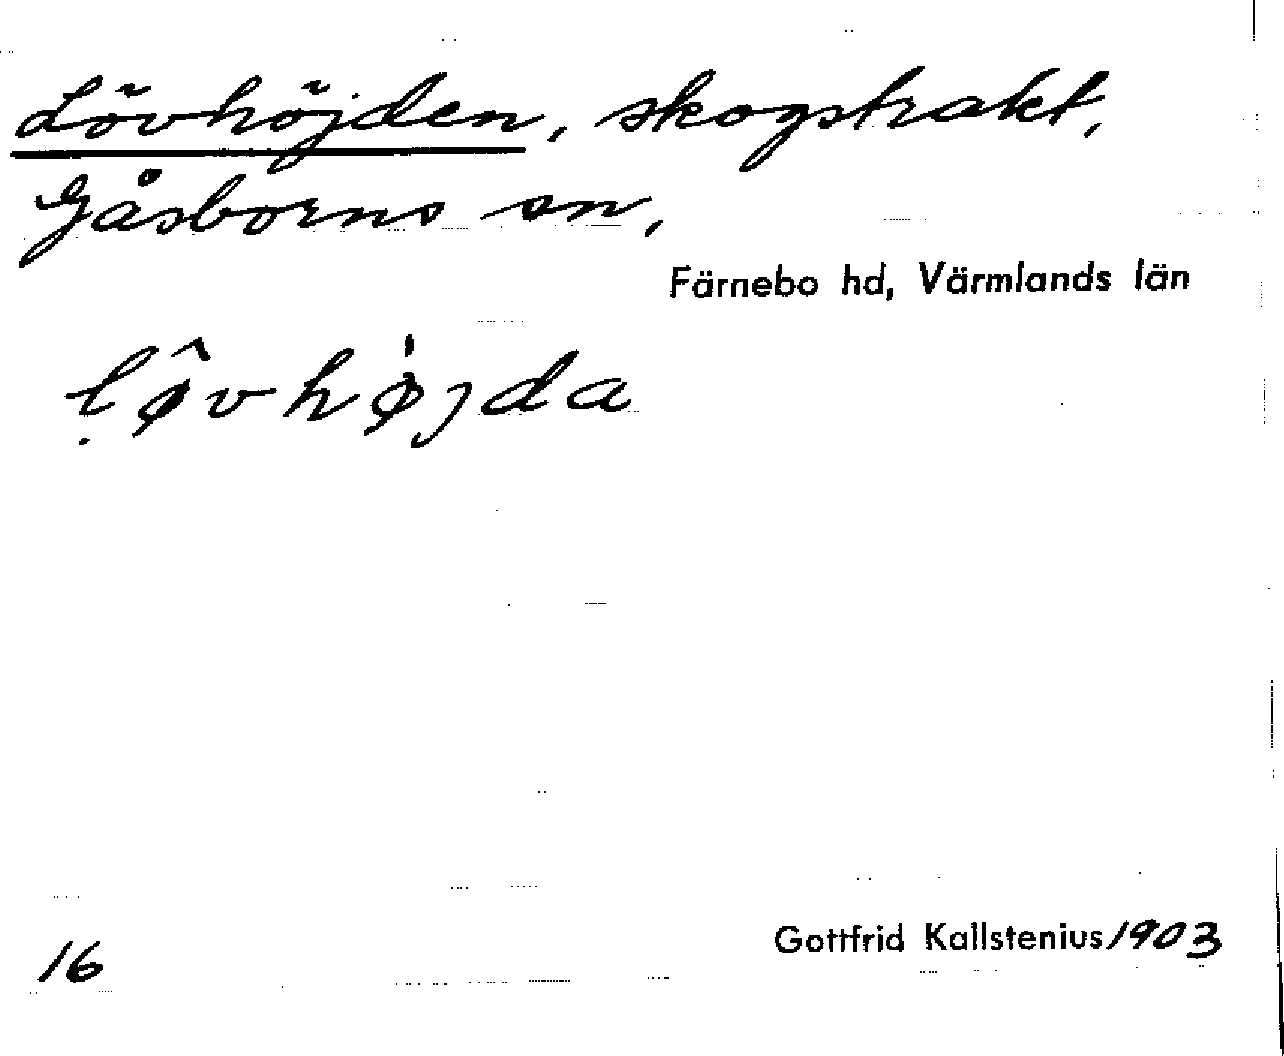 Lövhöjden, skogstrakt,
Gåsborns sn,
Färnebo hd, Värmlands län
ḷø̂vhø̍jda
16
Gottfrid Kallstenius 1903